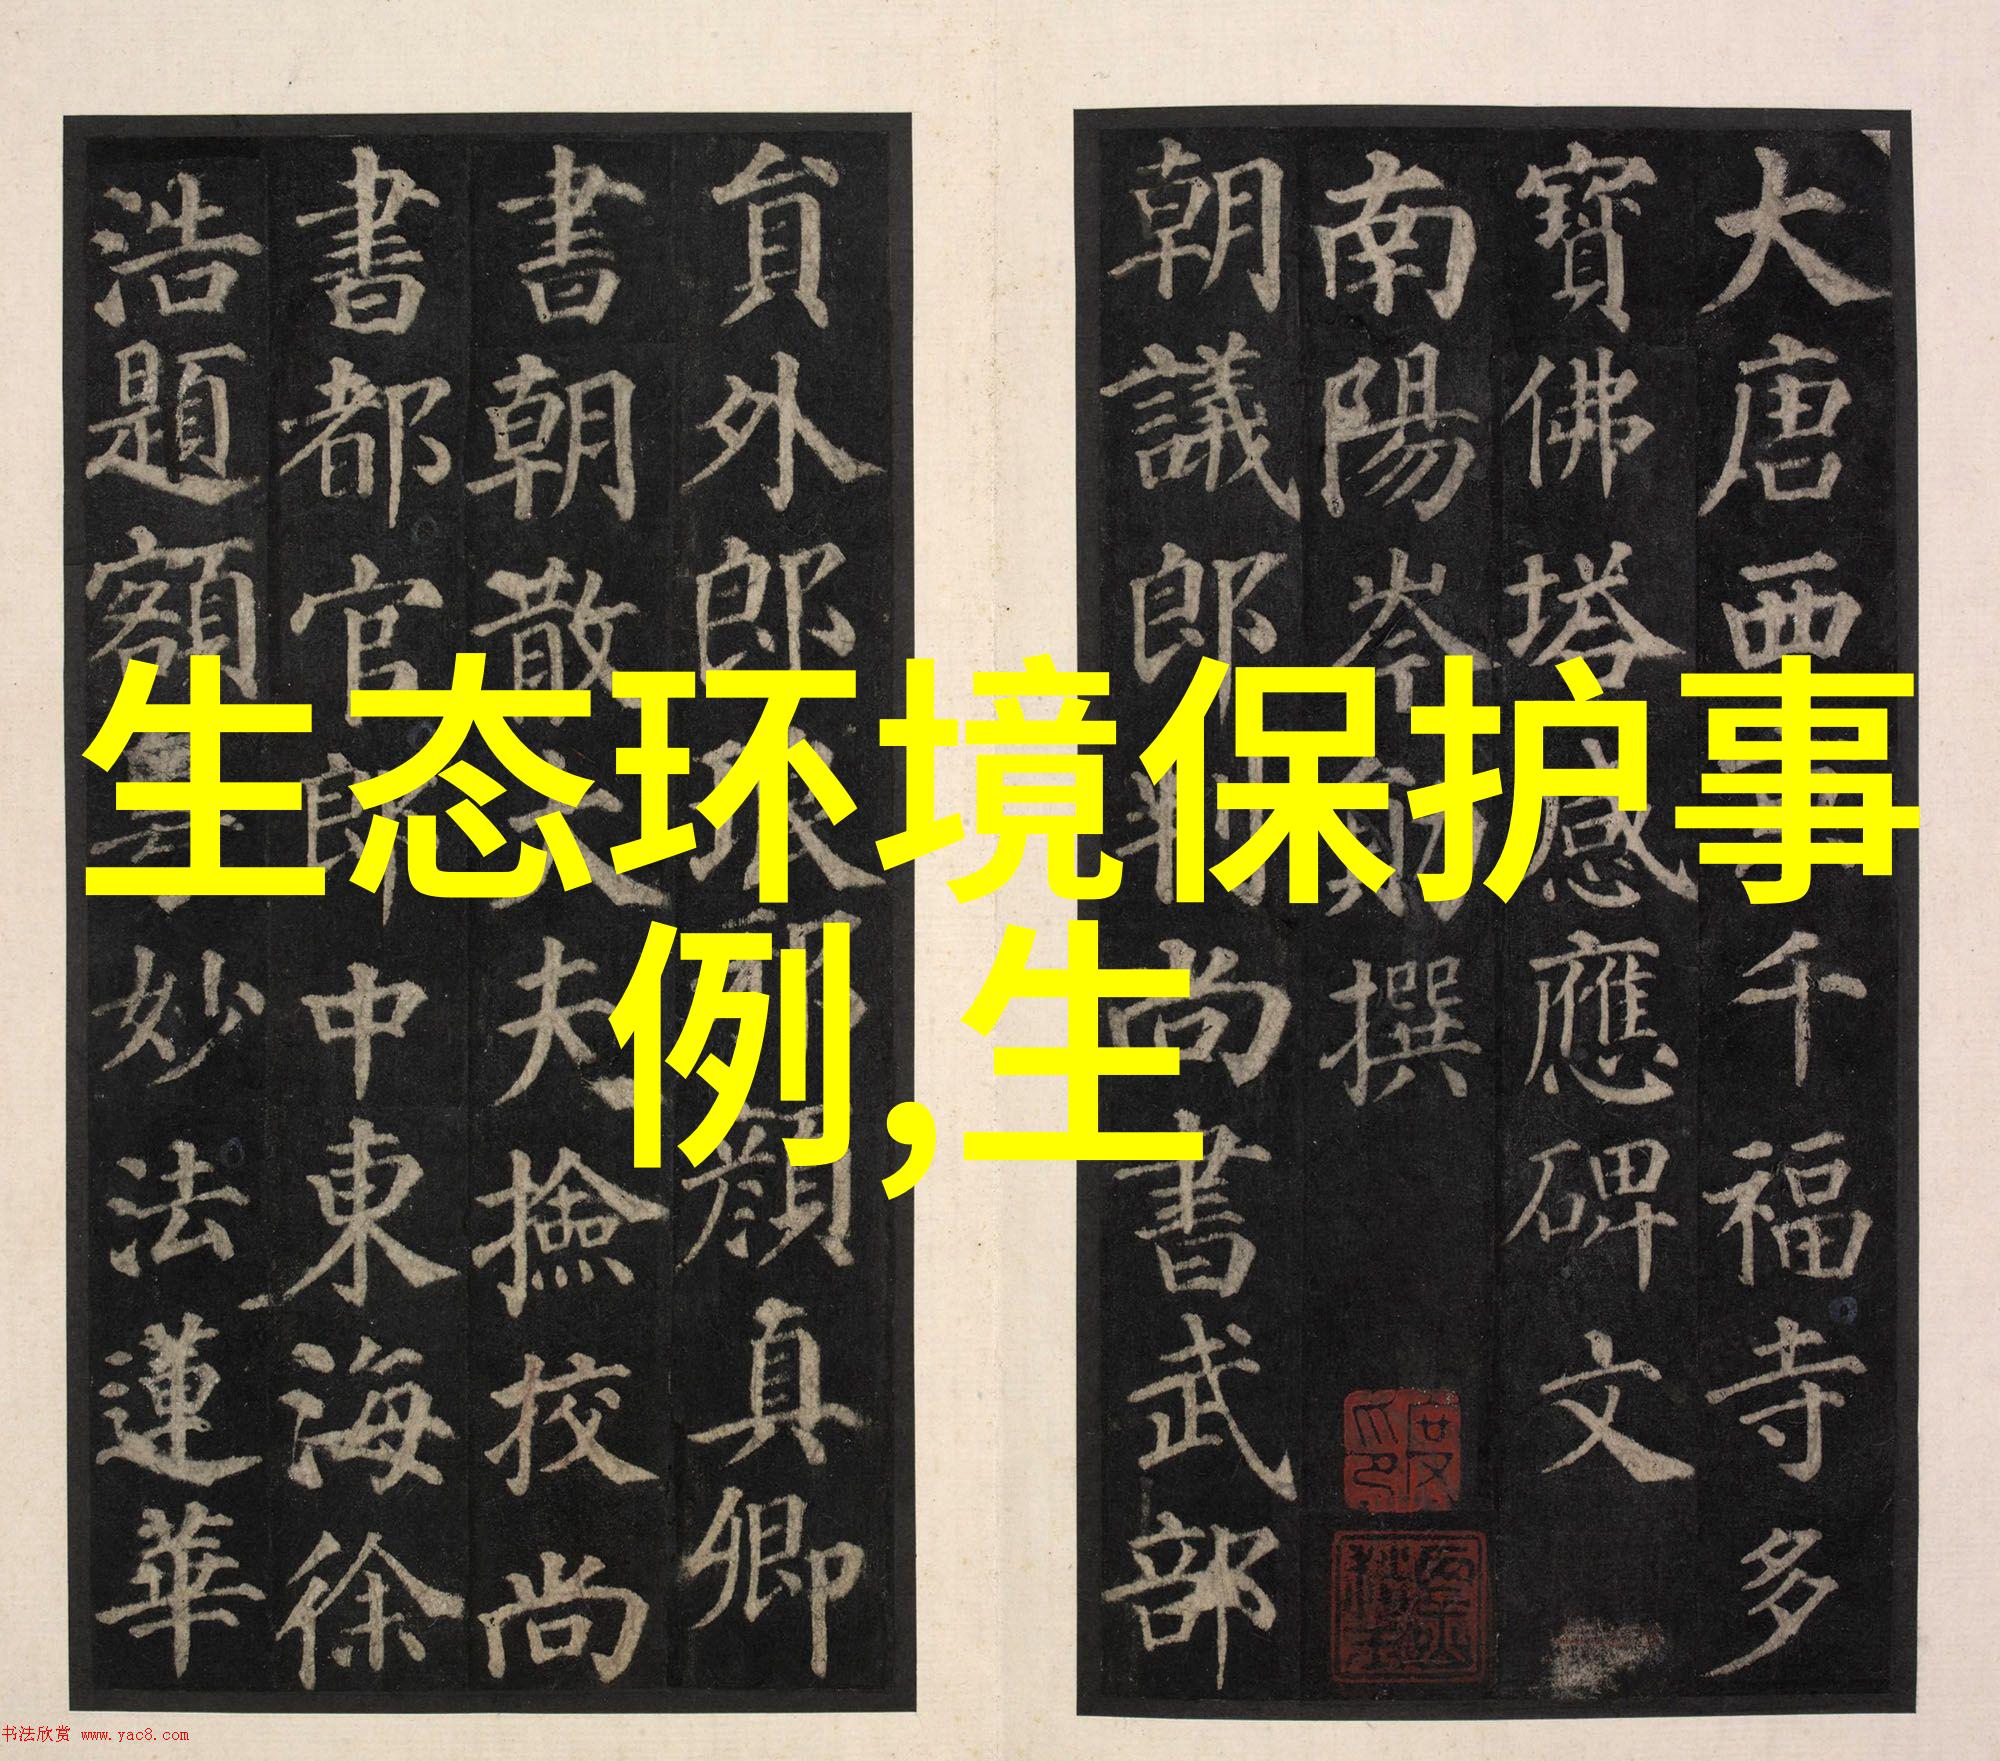 大唐西京千福寺多
寶佛塔感應碑文
南陽岑勛撰
朝議郎判尚書武部
貟外郎琅邪顏真卿
書朝散大夫撿校尚
書都官郎中東海徐
浩題額
妙法蓮華
生态环境保护事
例,生
书法欣赏 www.yac8.com